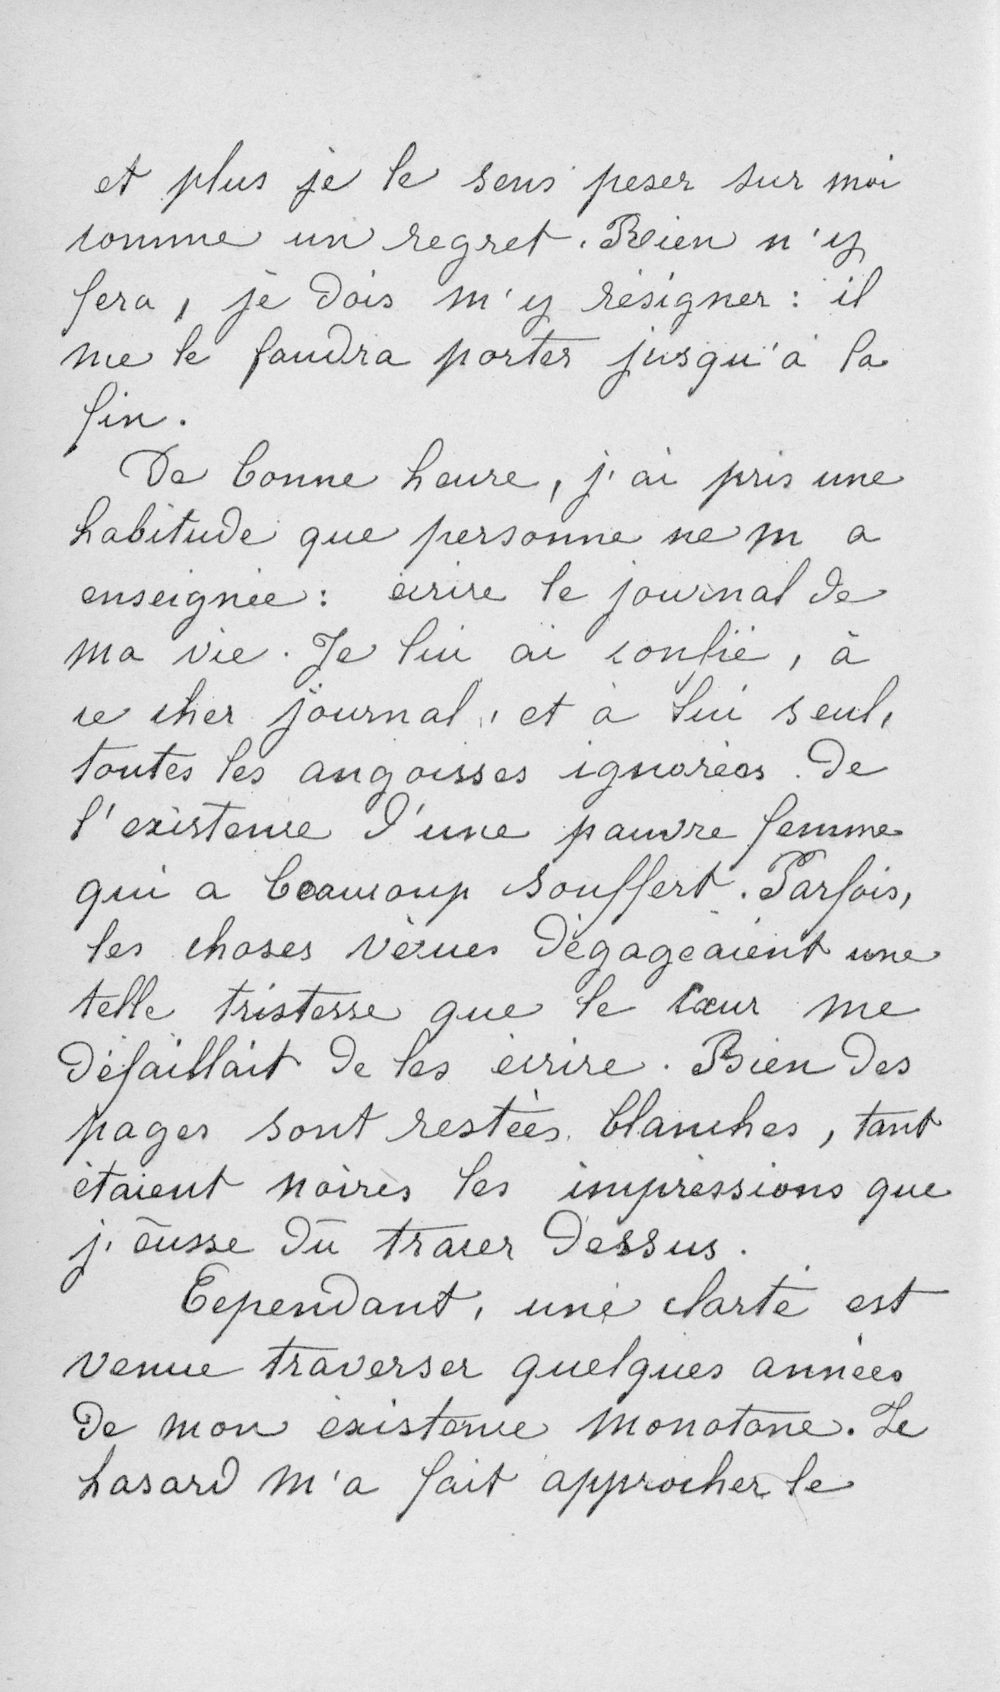 et plus je le sens peser sur moi
comme un regret. Rien n'y
fera, je dois m'y résigner : il
me le faudra porter jusqu'à la
fin.
De bonne heure, j'ai pris une
habitude que personne ne m'a
enseignée : écrire le journal de
ma vie. Je lui ai confié, à
ce cher journal, et à lui seul,
toutes les angoisses ignorées de
l'existence d'une pauvre femme
qui a beaucoup souffert. Parfois,
les choses vécues dégageaient une
telle tristesse que le cœur me
défaillait de les écrire. Bien des
pages sont restées blanches, tant
étaient noires les impressions que
j'eusse dû tracer dessus.
Cependant, une clarté est
venue traverser quelques années
de mon existence monotone. Le
hasard m'a fait approcher le